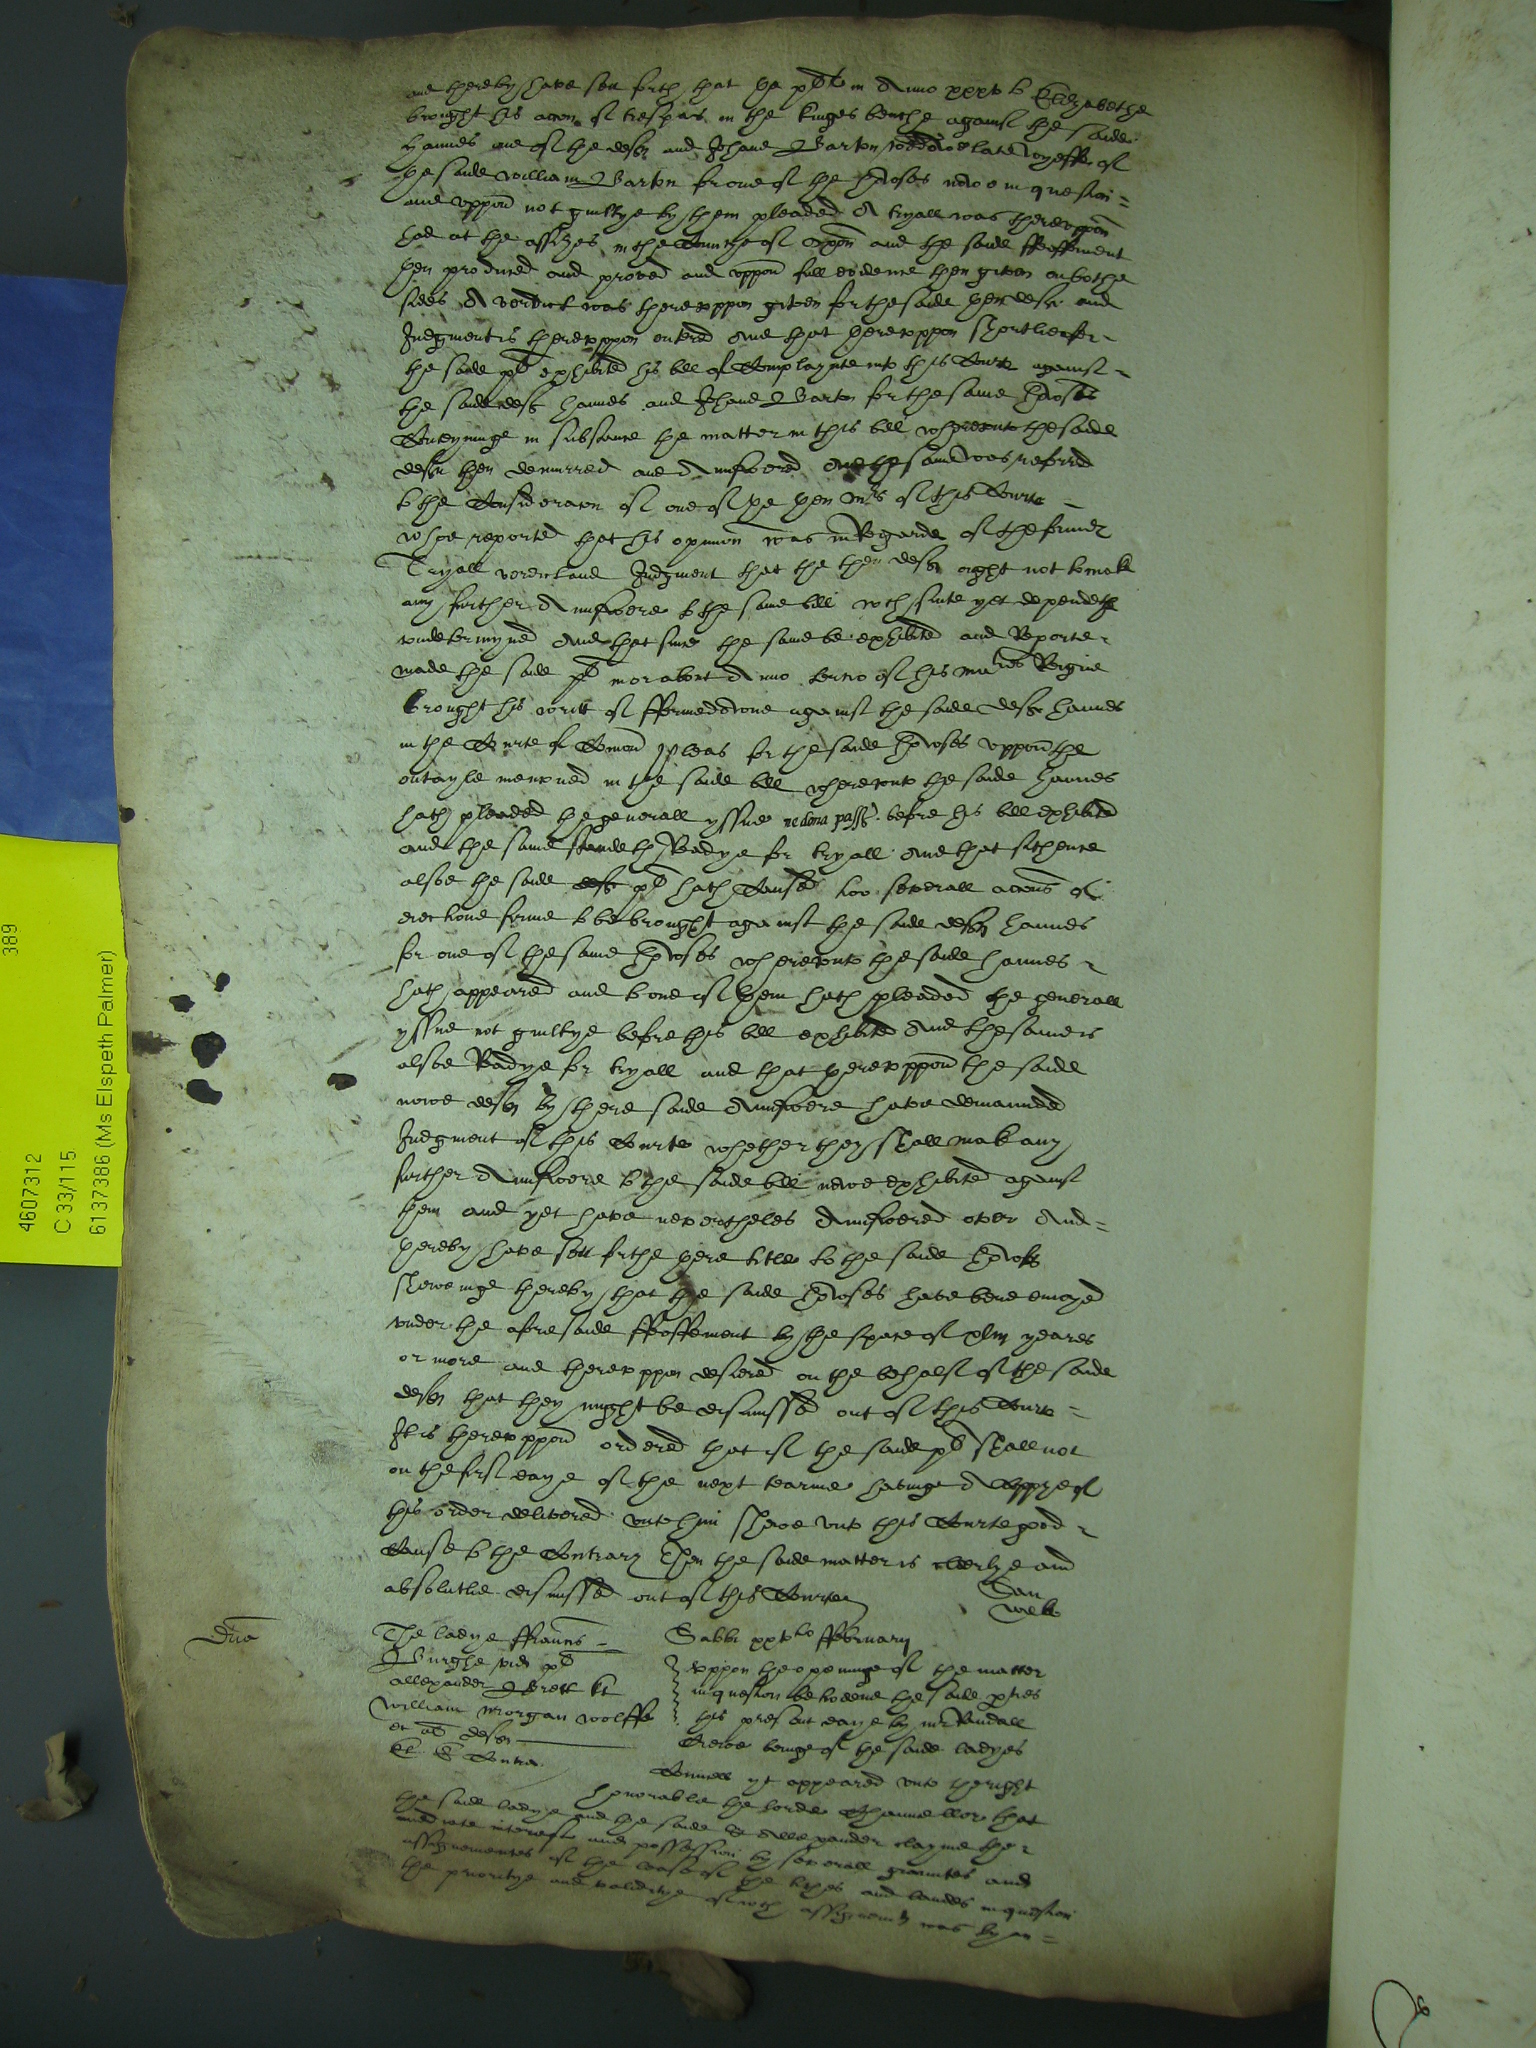 and thereby have sett forth that the pl^t in Anno xxxv^to Elizabethe
brought his accon of trespas in the kinges benche against the saide
Hannes one of the deft^s and Johane Barton widdowe late wyeffe of
the saide William Barton for one of the howses nowe in question =
and uppon not guiltye by them pleaded A tryall was thereuppon
had at the assizes in the Countye of and the saide ffeoffement
then produced and proved and uppon full evidence then given on bothe
sides A verdict was thereuppon given for the saide then deft^s and
Judgment is thereuppon entred And that thereuppon shortlie after
the saide pl^t exhibited his bill of Complaynte into this Courte against
the saide deft Hannes and Johane Barton for the same howses
Conteyninge in substance the matter in this bill whereunto the saide
deft^s then demurred and Answered And the same was referred
to the Consideracon of one of the then m^rs of this Courte =
whoe reported that his opinion was in Regarde of the former
Tryall verdict and Judgment that the then deft^s ought not to make
any further Answere to the same bill w^ch suite yet dependeth
undetermyned And that since the same bill exhibited and Reporte
made the saide pl^t in or about Anno tertio of his ma^ties Reigne
brought his writt of fformedowne against the saide deft Hannes
in the Courte of Comon Pleas for the saide howses uppon the
entayle mencned in the saide bill whereunto the saide Hannes
hath pleaded the generall yssue ne dona pass before this bill exhibited
and the same standeth Readye for tryall And that sithence
alsoe the saide deft pl^t hath Caused two severall accons of
eiectione firme to be brought against the saide deft Hannes
for one of the same howses whereunto the saide Hannes
hath appeared and to one of them hath pleaded the generall
yssue not guiltye before this bill exhibited And the same is
alsoe Readye for tryall and that thereuppon the saide
nowe deft^s by there saide Answere have demaunded
Judgment of this Courte whether they shall make any
further Answere to the saide bill nowe exhibited against
them and yet have nevertheles Answered over And =
thereby have sett forthe there title to the saide howses
shewinge thereby that the saide howses have bene enioyed
under the aforesaide ffeoffement by the space of xliij yeares
or more and thereuppon desiered on the behalf of the saide
deft^s that they might be dismissed out of this Courte =
It is thereuppon ordered that if the saide pl^t shall not
on the first daye of the next tearme havinge A Coppye of
this order delivered unto him shewe unto this Courte good
Cause to the Contrary Then the saide matter is cleerlye and
absolutlie dismissed out of this Courte
San
webb
The ladye ffraunces
Burghe vid pl^t
Allexander Brett kt
William Morgan Wolffe
et al deft^s
Sabbti xxv^to ffebruary
Uppon the openinge of the matter
in question betweene the saide p^ties
this present daye by m^r Randall
Crewe beinge of the saide ladyes
Councell yt appeared unto the right
honorable the lorde Chauncellor that
the saide ladye and the saide S^r Allexander clayme their
interest and possession by severall grauntes and
assignementes of the lease of the tithes and landes in question
the prioritye and validitye of w^ch assignem^ts was by m =
4607312 389
C 33/115
6137386 (Ms Elspeth Palmer)